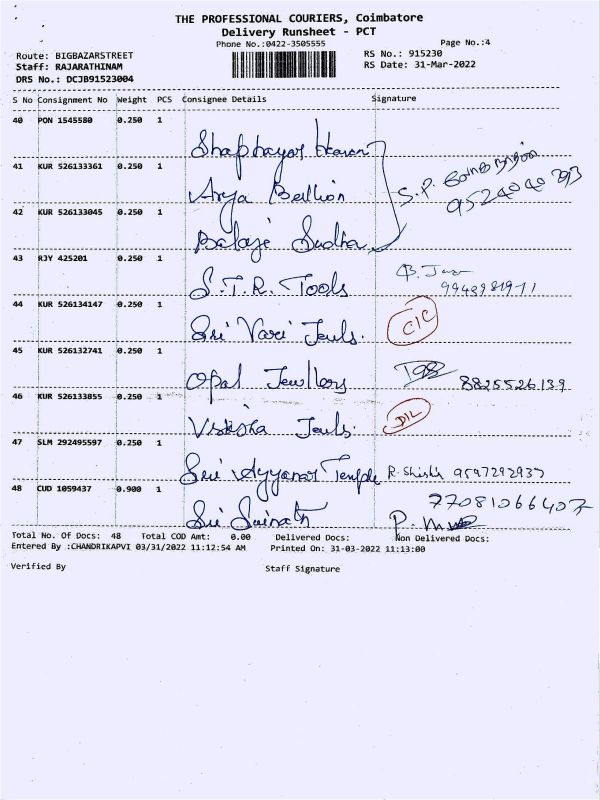 THE PROFESSIONAL COURIERS, Coimbatore
Delivery Runsheet - PCT
Phone No.:0422-3505555 Page No.:4
Route: BIGBAZARSTREET RS No.: 915230
Staff: RAJARATHINAM RS Date: 31-Mar-2022
DRS No.: DCJB91523004
S No Consignment No Weight PCS Consignee Details Signature
40 PON 1545580 0.250 1
41 KUR 526133361 0.250 1 S.P.
Arya
42 KUR 526133045 0.250 1
Balaji Sudha
43 RJY 425201 0.250 1
S.T.R. Tools
44 KUR 526134147 0.250 1
Sri Vari Jewls. C/C
45 KUR 526132741 0.250 1
Opal Jewllers 8825526139
46 KUR 526133855 0.250 1
Jewls. D/L
47 SLM 292495597 0.250 1
Sri Ayyanar Temple 9597292937
48 CUD 1059437 0.900 1 77081066407
Sri Sairath P.
Total No. Of Docs: 48 Total COD Amt: 0.00 Delivered Docs: Non Delivered Docs:
Entered By :CHANDRIKAPVI 03/31/2022 11:12:54 AM Printed On: 31-03-2022 11:13:00
Verified By Staff Signature